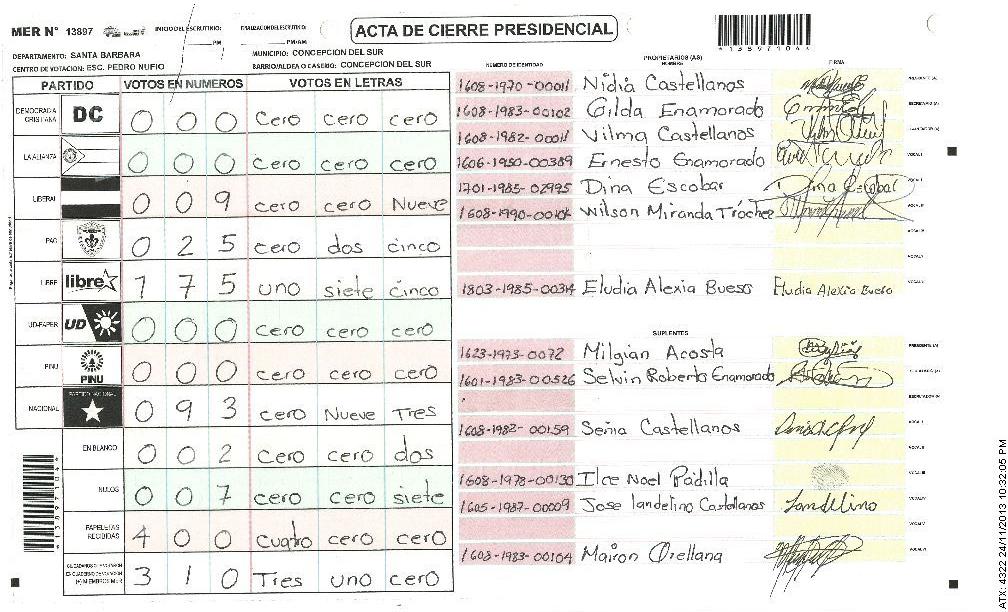 MER N° 13897
INICIO DEL ESCRUTINIO: PM
FINALIZACION DEL ESCRUTINIO: PM/AM
ACTA DE CIERRE PRESIDENCIAL
DEPARTAMENTO: SANTA BARBARA
MUNICIPIO: CONCEPCION DEL SUR
CENTRO DE VOTACION: ESC. PEDRO NUFIO
BARRIO/ALDEA O CASERIO: CONCEPCION DEL SUR
PARTIDO VOTOS EN NUMEROS VOTOS EN LETRAS
DEMOCRACIA CRISTIANA DC 0 0 0 cero cero cero
LA ALIANZA 0 0 0 cero cero cero
LIBERAL 0 0 9 cero cero Nueve
PAC 0 2 5 cero dos cinco
LIBRE libre 1 7 5 uno siete cinco
UD-FAPER UD 0 0 0 cero cero cero
PINU PINU 0 0 0 cero cero cero
NACIONAL PARTIDO NACIONAL 0 9 3 cero Nueve Tres
EN BLANCO 0 0 2 cero cero dos
NULOS 0 0 7 cero cero siete
PAPELETAS RECIBIDAS 4 0 0 cuatro cero cero
3 1 0 Tres uno cero
(+) MIEMBROS MER
PROPIETARIOS (AS)
NUMERO DE IDENTIDAD NOMBRE FIRMA
1608-1970-00011 Nidia Castellanos
1608-1983-00102 Gilda Enamorado
1608-1982-00011 Vilma Castellanos
1606-1950-00389 Ernesto Enamorado
1701-1985-02995 Dina Escobar Dina Escobar
1608-1990-00104 Wilson Miranda Tróchez
1803-1985-00314 Eludia Alexia Bueso Eludia Alexia Bueso
SUPLENTES
1623-1973-0072 Milgian Acosta
1601-1983-00526 Selvin Roberto Enamorado
1608-1982-00159 Senia Castellanos
1608-1978-00130 Ilce Noel Padilla
1605-1987-00009 Jose landelino Castellanos Landelino
1608-1983-00104 Mairon Orellana
ATX: 4322 24/11/2013 10:32:05 PM